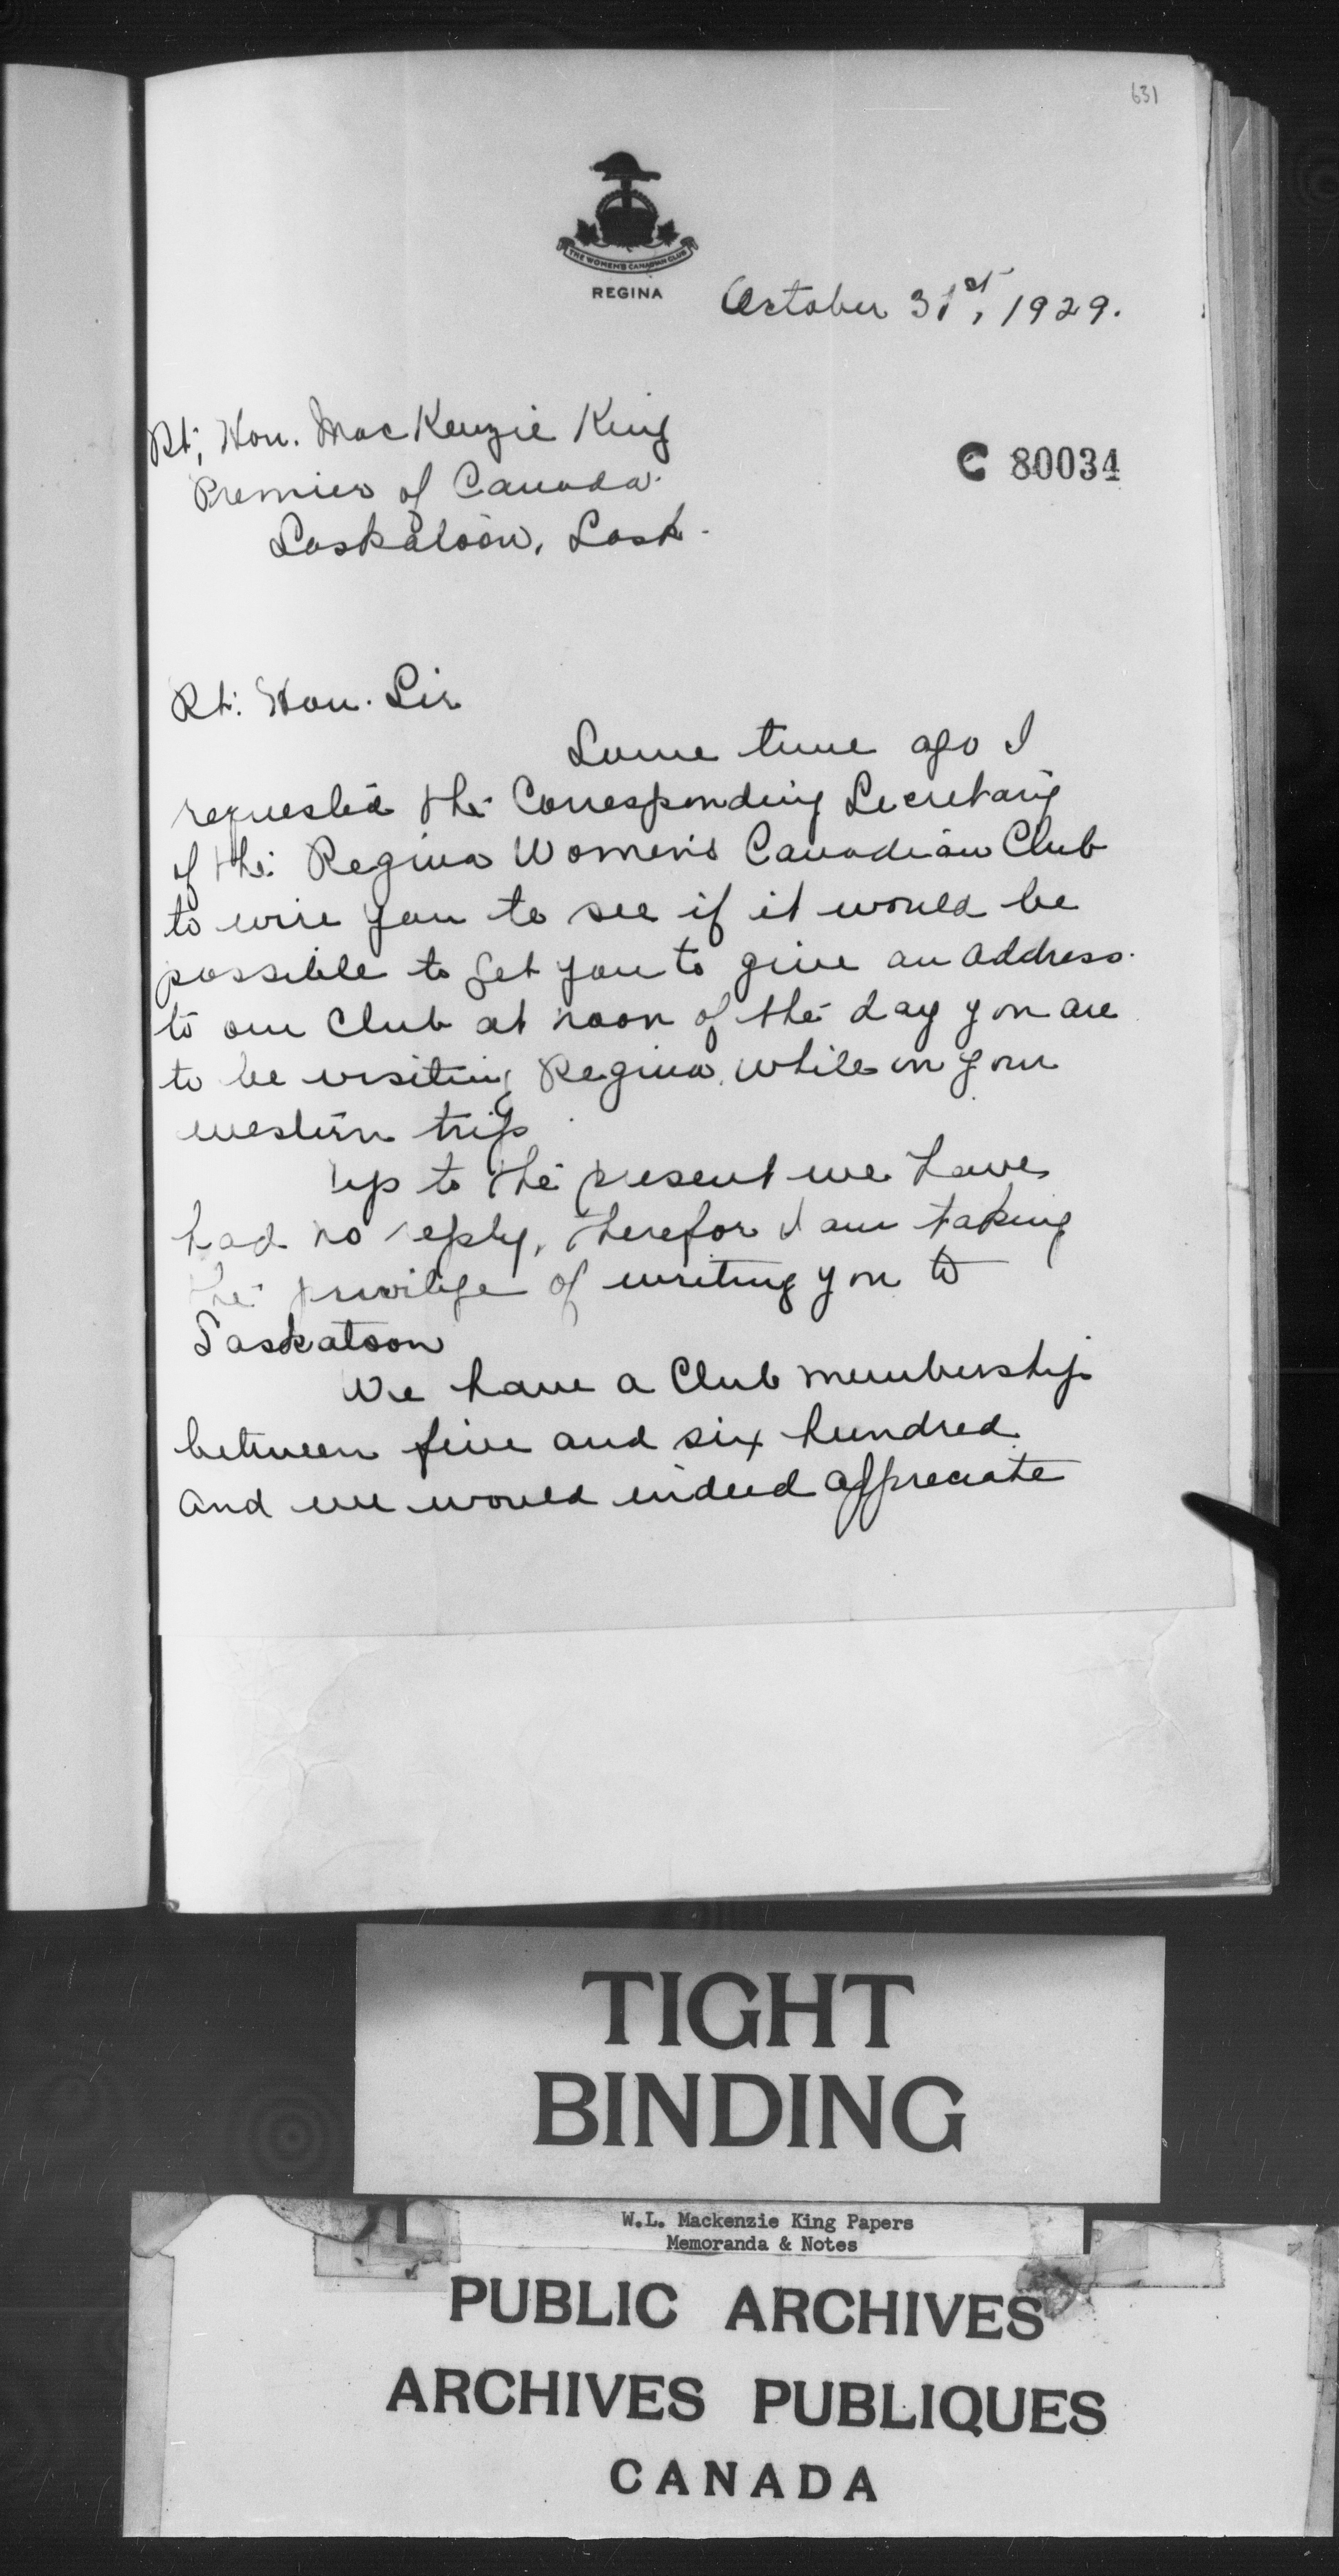 631
THE WOMEN'S CANADIAN CLUB
REGINA
October 31st, 1929.
Rt; Hon. MacKenzie King
C 80034
Premier of Canada.
Saskatoon, Sask.
Rt: Hon. Sir
Some time ago I
requested the Corresponding Secretary
of the Regina Women's Canadian Club
to wire you to see if it would be
possible to get you to give an address
to our Club at noon of the day you are
to be visiting Regina, while on your
western trip
Up to the present we have
had no reply, therefor I am taking
the privilige of writing you to
Saskatoon
We have a Club membership
between five and six hundred
and we would indeed appreciate
TIGHT
BINDING
W.L. Mackenzie King Papers
Memoranda & Notes
PUBLIC ARCHIVES
ARCHIVES PUBLIQUES
CANADA